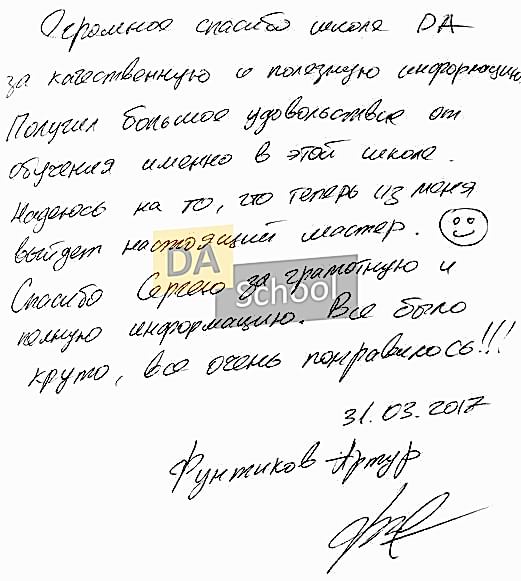 Огромное спасибо школе DA
за качественную и полезную информацию.
Получил большое удовольствие от
обучения именно в этой школе.
Надеюсь на то, что теперь из меня
выйдет настоящий мастер.
Спасибо Сергею за грамотную и
полную информацию. Все было
круто, все очень понравилось!!!
31.03.2017
Фунтиков Артур
DA
school